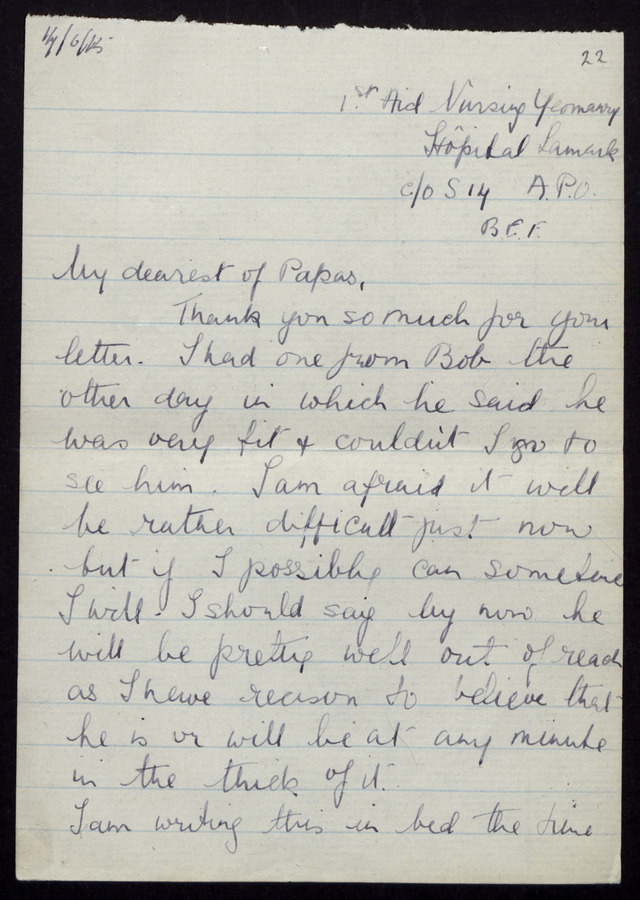 17/6/15
22
1st Aid Nursing Yeomanry
Hôpital Lamark
c/o S 14 A.P.O.
B.E.F.
My dearest of Papas,
Thank you so much for your
letter. I had one from Bob the
other day in which he said he
was very fit & couldn't I go to
see him. I am afraid it will
be rather difficult just now
but if I possibly can sometime
I will. I should say by now he
will be pretty well out of reach
as I have reason to believe that
he is or will be at any minute
in the thick of it.
I am writing this in bed the time